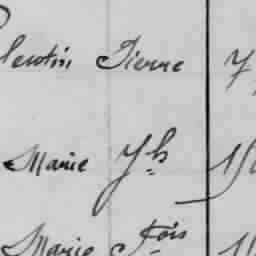 lentin Pierre 7
Marie Jh 15
Marie Fois